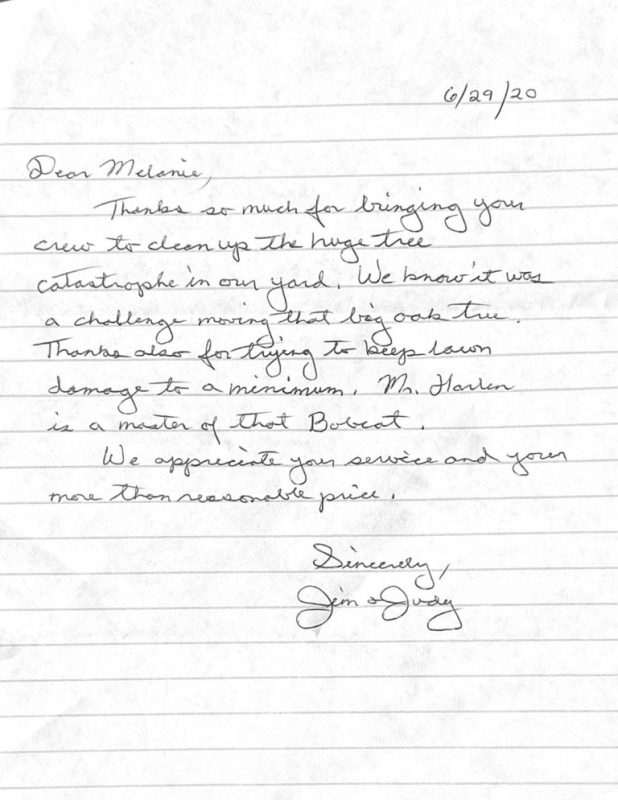 6/29/20
Dear Melanie,
Thanks so much for bringing your
crew to clean up the huge tree
catastrophe in our yard. We know it was
a challenge moving that big oak tree.
Thanks also for trying to keep lawn
damage to a minimum. Mr. Harlen
is a master of that Bobcat.
We appreciate your service and your
more than reasonable price.
Sincerely,
Jim & Judy